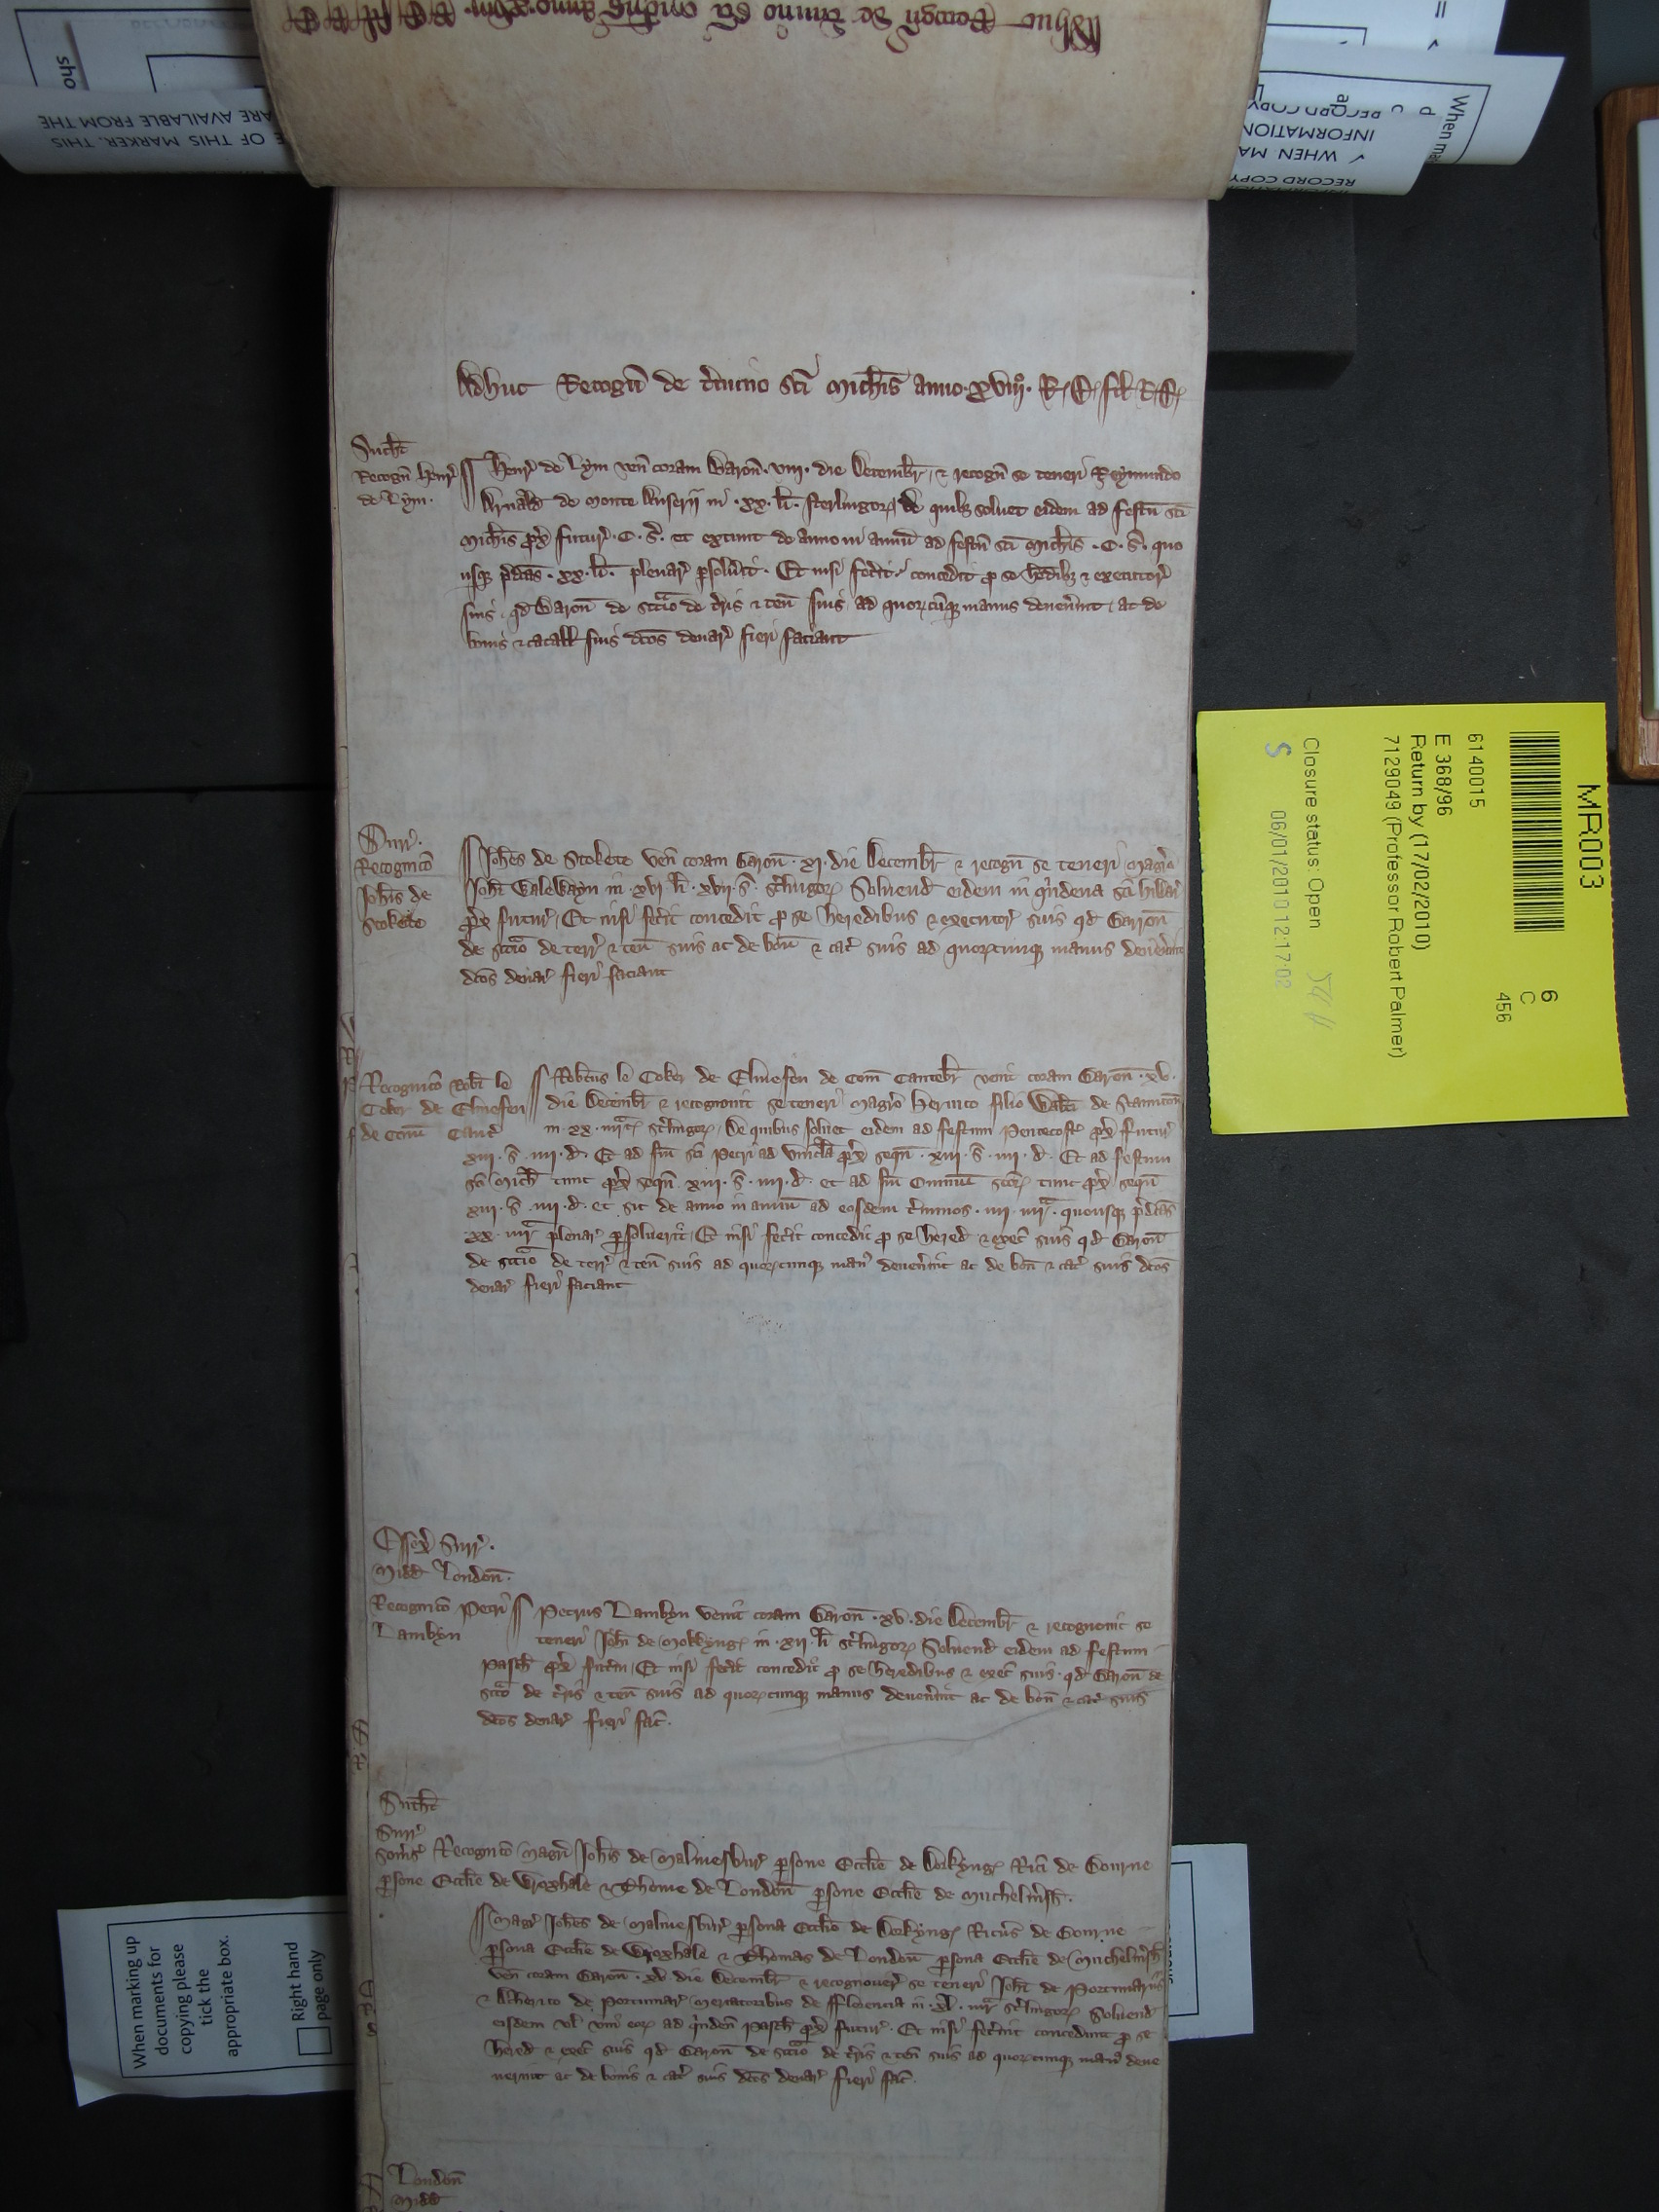 Adhuc Recogn̄ de t'mino sc̄i Mich̄is anno xviijº R E fil R E
Suth̄t
Recogn̄ Henr'
de Lym
Henr' de Lym ven̄ coram Baron̄ viij die Decembr' & recogn̄ se teneri Reymundo
Arnald de monte Anserij in xx li sterlingor' de quib; soluet eidem ad festu' sc̄i
Mich̄is px' futur' C s' et extunc de anno in annu' ad festu' sc̄i Mich̄is C s' quo
usq; p'd̄cas xx li plenar' p'solu'it Et nisi fec'it concedit p se h'edib; & executor'
suis qd Baron̄ de scc'io de t'ris & ten̄ suis ad quor'cu'q; manus deuen'int ac de
bonis & catall suis dc̄os denar' fieri faciant
Surr'
Recognic̄o
Joh̄is de
Stokete
Joh̄es de Stokete ven̄ coram Baron̄ xj die Decembr' & recogn̄ se teneri Magr̄o
Joh̄i Walewayn in xvj li xvij s' st'lingor' Soluend eidem in q'ndena sc̄i Hillar'
px' futur' Et nisi fec'it concedit p se heredibus & executor' suis qd Baron̄
de scc'io de terr' & ten̄ suis ac de bon̄ & cat' suis ad quor'cunq; manus deuen'int
dc̄os denar' fieri faciant
Recognic̄o Rob̄ti le
Coker de Elmesen
de Com̄ Cant'
Rob̄tus le Coker de Elmesen de Com̄ Cantebr' venit coram Baron̄ xv
die Decembr' & recognouit se teneri Magr̄o Henrico filio de Staunton
in xx mr̄c st'lingor' De quibus soluet eidem ad festum Pentecost' px' futur'
xiij s' iiij d Et ad fm̄ sc̄i Petri ad vincl̄a px' sequn̄ xiij s' iiij d Et ad festum
sc̄i Mich̄ tunc px' sequn̄ xiij s' iiij d et ad fm̄ Omniū sc̄or' tunc px' sequn̄
xiij s' iiij d et sic de anno in annū ad eosdem t'minos iiij mr̄c quousq; p'd̄cas
xx mr̄c plenar' p'soluerit Et nisi fec'it concedit p se hered & exec' suis qd Baron̄
de scc'io de terr' & ten̄ suis ad quor'cunq; man' deuen'int ac de bon̄ & cat' suis dc̄os
denar' fieri faciant
Essex' Surr'
Midd London̄
Recognic̄o Petri
Lambyn
Petrus Lambyn venit coram Baron̄ xv die Decembr' & recognouit se
teneri Joh̄i de Mokkyng' in xij li st'lingor' Soluend eidem ad festum
Pasch̄ px' futur' Et nisi fec'it concedit p se heredibus & exec' suis qd Baron̄ de
scc'io de t'ris & ten̄ suis ad quor'cunq; manus deuen'int ac de bon̄ & cat' suis
dc̄os denar' fieri fac'
Suth̄t
Surr'
Som's' Recognic̄o Magr̄i Joh̄is de Malmesbur' p'sone Eccl̄ie de Dorkyng' Ric̄i de Bourne
p'sone Eccl̄ie de Wroxhale & Thome de London̄ p'sone Eccl̄ie de Muchelm'sh
Magr' Joh̄es de Malmesbur' p'sona Eccl̄ie de Dorkyng' Ric̄us de Bourne
p'sona Eccl̄ie de Wroxhale & Thomas de London̄ p'sona Eccl̄ie de Michelm'sh
ven̄ coram Baron̄ xv die Decembr' & recognouer' se teneri Joh̄i de Portinar'
& Alberico de Portinar' mercatoribus de Florencia in xl mr̄c st'lingor' Soluend
eisdem vl' vni eor' ad q'nden̄ Pasch̄ px' futur' Et nisi fec'int concedunt p se
hered & exec' suis qd Baron̄ de scc'io de t'ris & ten̄ suis ad quor'cunq; man' deue
nerint ac de bonis & cat' suis dc̄os denar' fieri fac'
London̄
Midd
MR003
6
C
456
6140015
E 368/96
Return by (17/02/2010)
7129049 (Professor Robert Palmer)
Closure status: Open
S 06/01/2010 12:17:02
When marking up
documents for
copying please
tick the
appropriate box.
Right hand
page only
OF THIS MARKER. THIS
ARE AVAILABLE FROM THE
sho
WHEN MA
INFORMATION
RECORD COPY